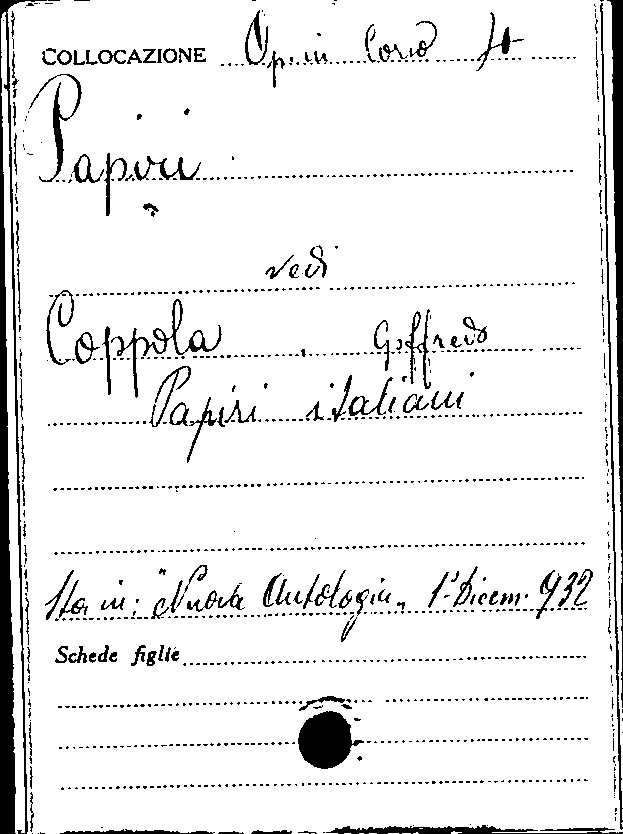 COLLOCAZIONE Op. in Corso
Papiri
vedi
Coppola, Goffredo
Papiri italiani
Sta in: "Nuova Antologia„ 1° Dicem. 932
Schede figlie